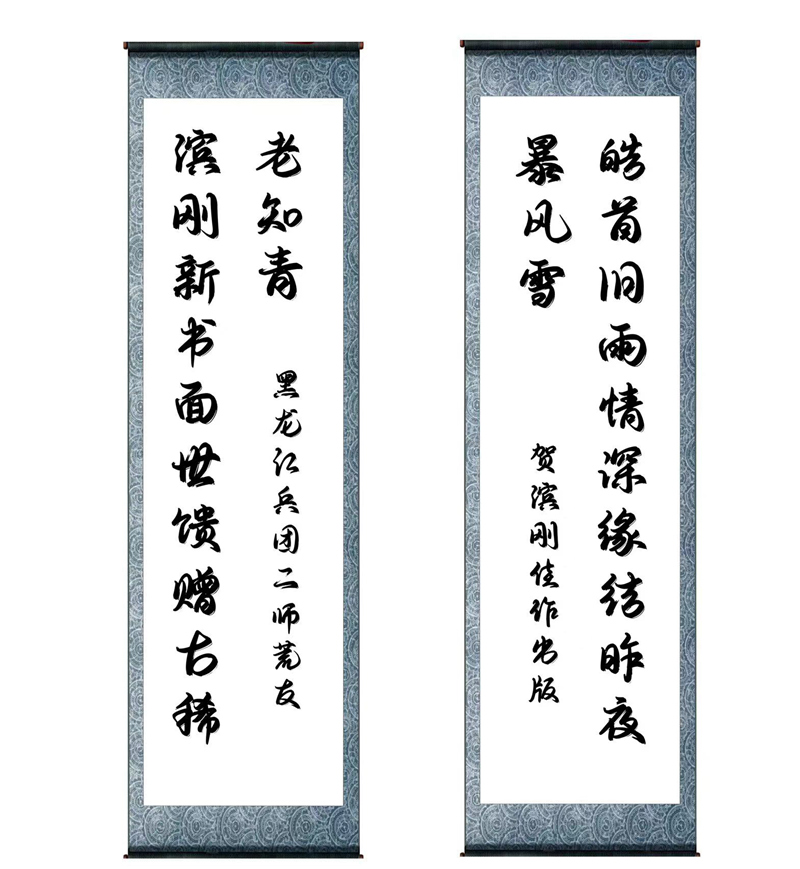 皓首旧雨情深缘结昨夜
暴风雪
贺滨刚佳作出版
滨刚新书面世馈赠古稀
老知青
黑龙江兵团二师荒友